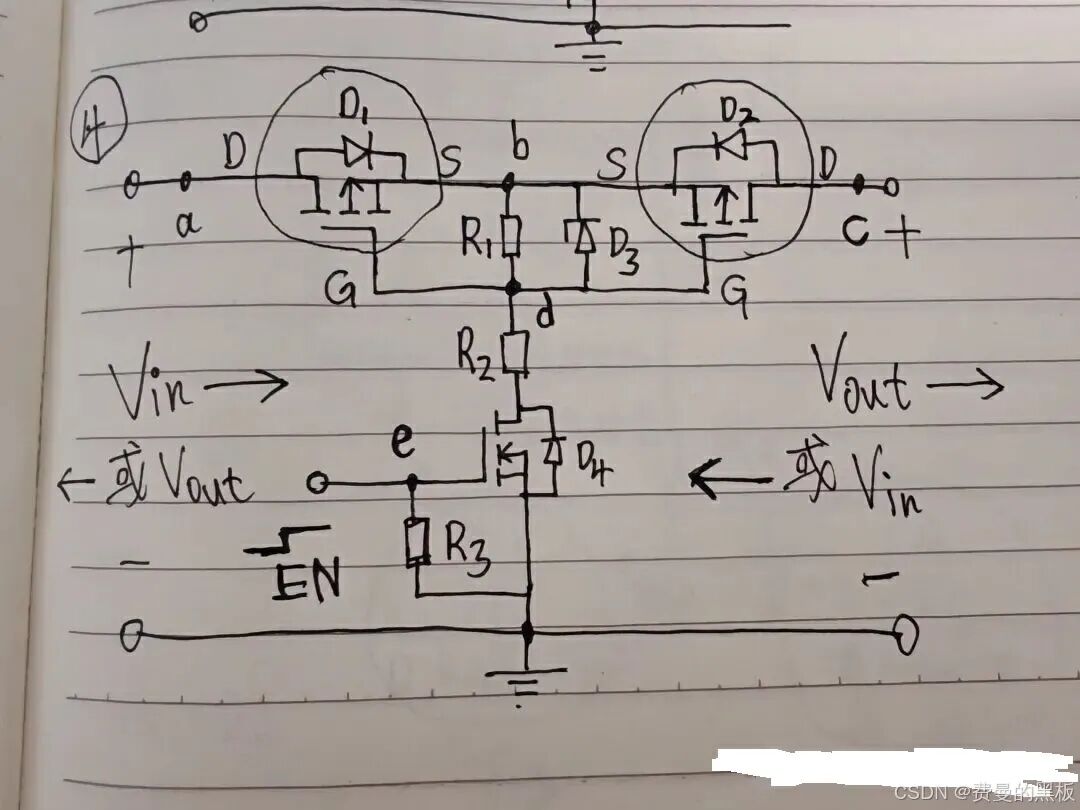 4
D D1 S b S D2 D
a R1 D3 c
+ +
G d G
R2
Vin → Vout →
e
← 或 Vout D4 ← 或 Vin
R3
EN
- -
CSDN @费曼的黑板